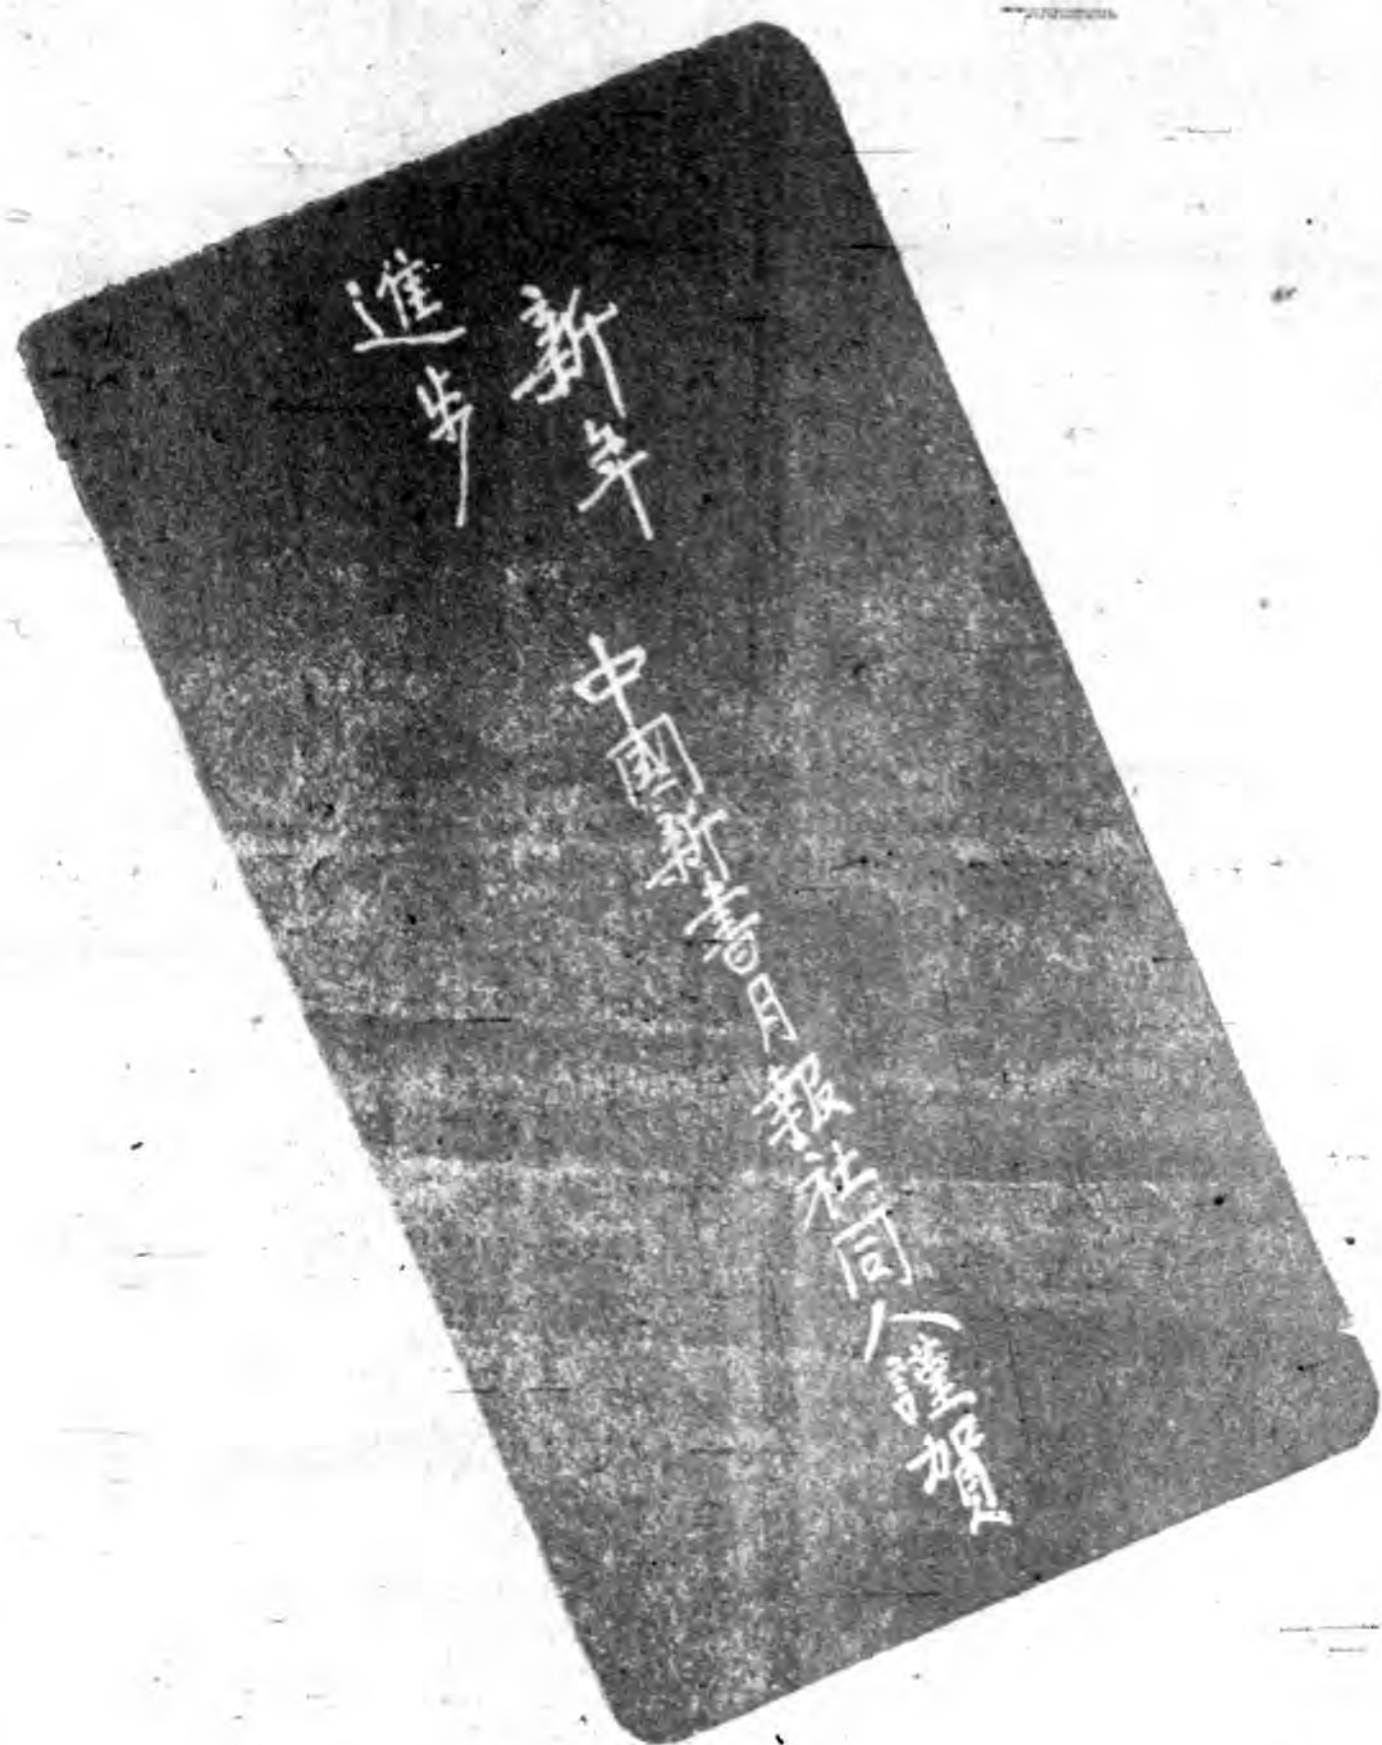 新年
進步
中國新書月報社同人謹賀